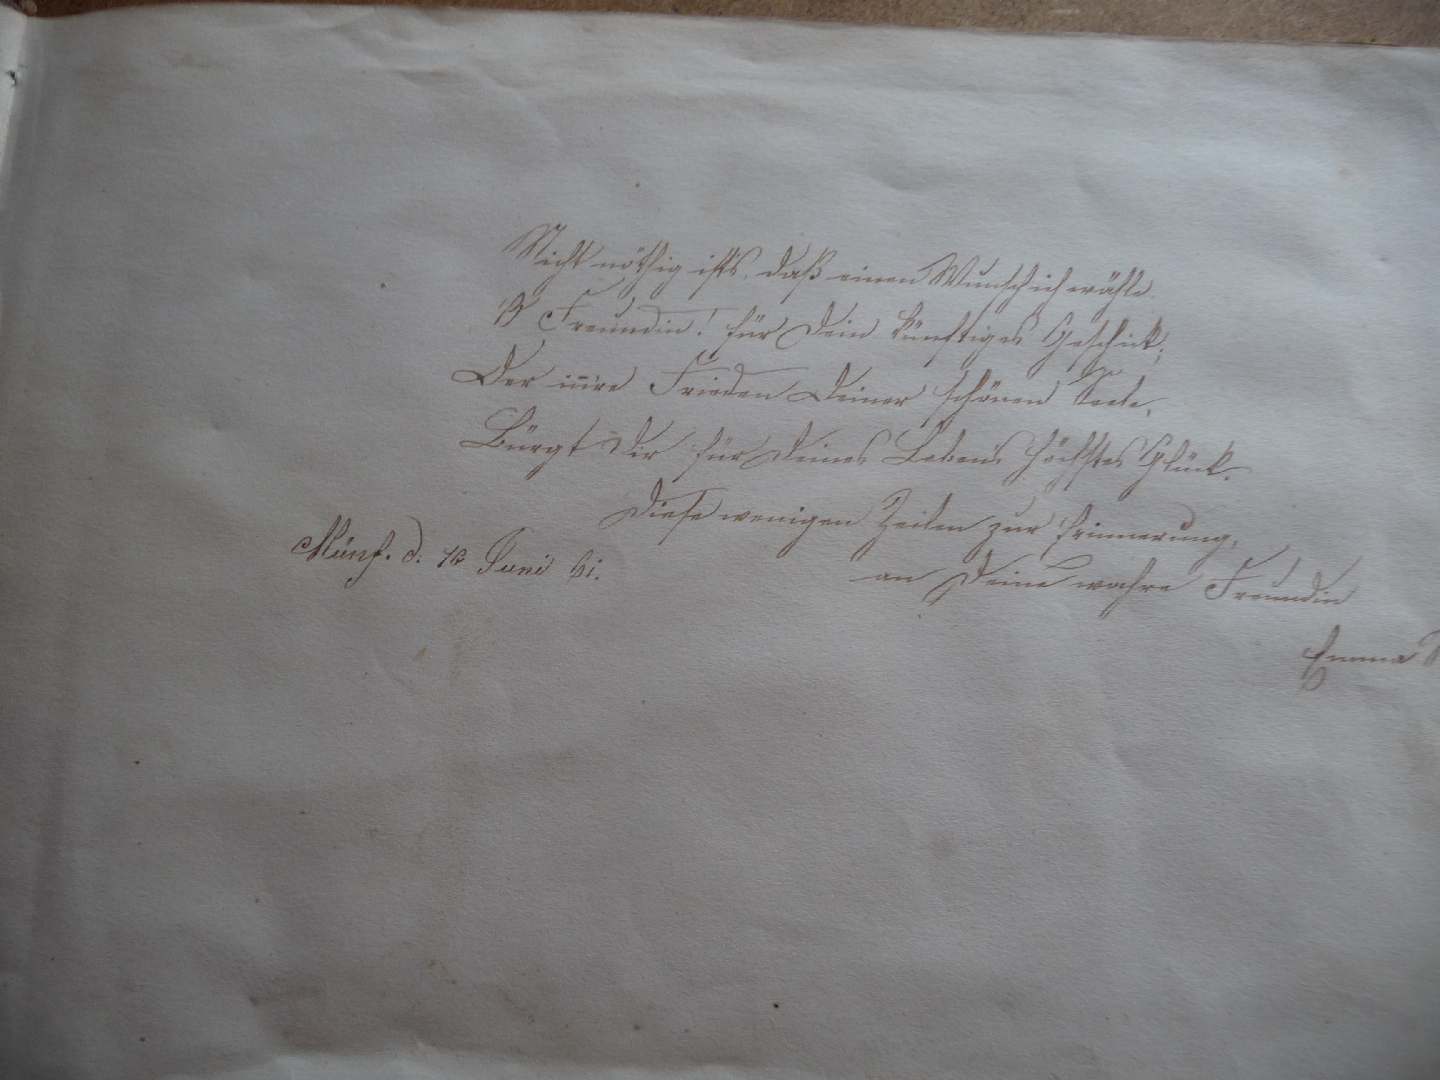 Nicht nöthig ists, daß einen Wunsch ich wähle
O Freundin! für Dein künftiges Geschick;
Der inn're Frieden Deiner schönen Seele,
Bürgt Dir für Deines Lebens höchstes Glück.
Diese wenigen Zeilen zur Erinnerung,
an Deine wahre Freundin
Emma
d. Juni 61.